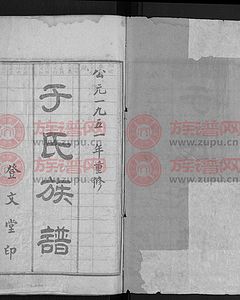 公元一九五一年重修
于氏族譜
登文堂印
族谱网
www.zupu.cn
族谱网
www.zupu.cn
族谱网
www.zupu.cn
族谱网
www.zupu.cn